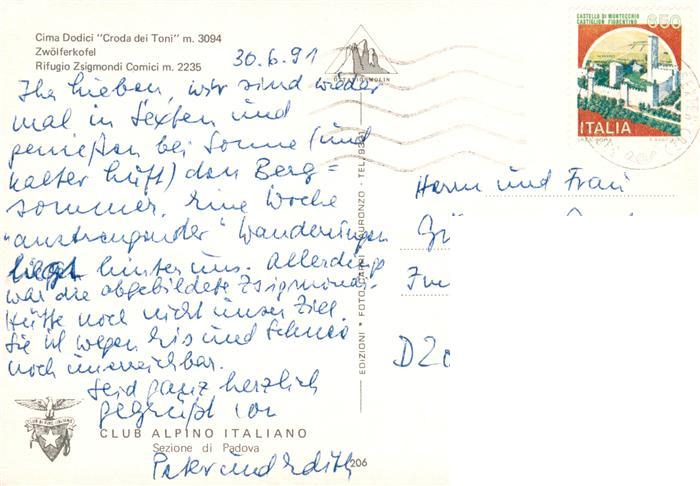 Cima Dodici "Croda dei Toni" m. 3094
Zwölferkofel
Rifugio Zsigmondi Comici m. 2235
30.6.91
Ihr Lieben, wir sind wieder
mal in Sexten und
genießen bei Sonne (und
kalter Luft) den Berg=
sommer. Eine Woche
"anstrengender" Wanderungen
liegt hinter uns. Allerdings
war die abgebildete Zsigmondi-
Hütte noch nicht unser Ziel.
Sie ist wegen Eis und Schnee
noch unerreichbar.
Seid ganz herzlich
gegrüßt von
Peter und Edith
CLUB ALPINO ITALIANO
Sezione di Padova
206
EDIZIONI * FOTO GHEDINA
AURONZO - TEL.
CASTELLO DI MONTECCHIO
CASTIGLION FIORENTINO
650
ITALIA
Herrn und Frau